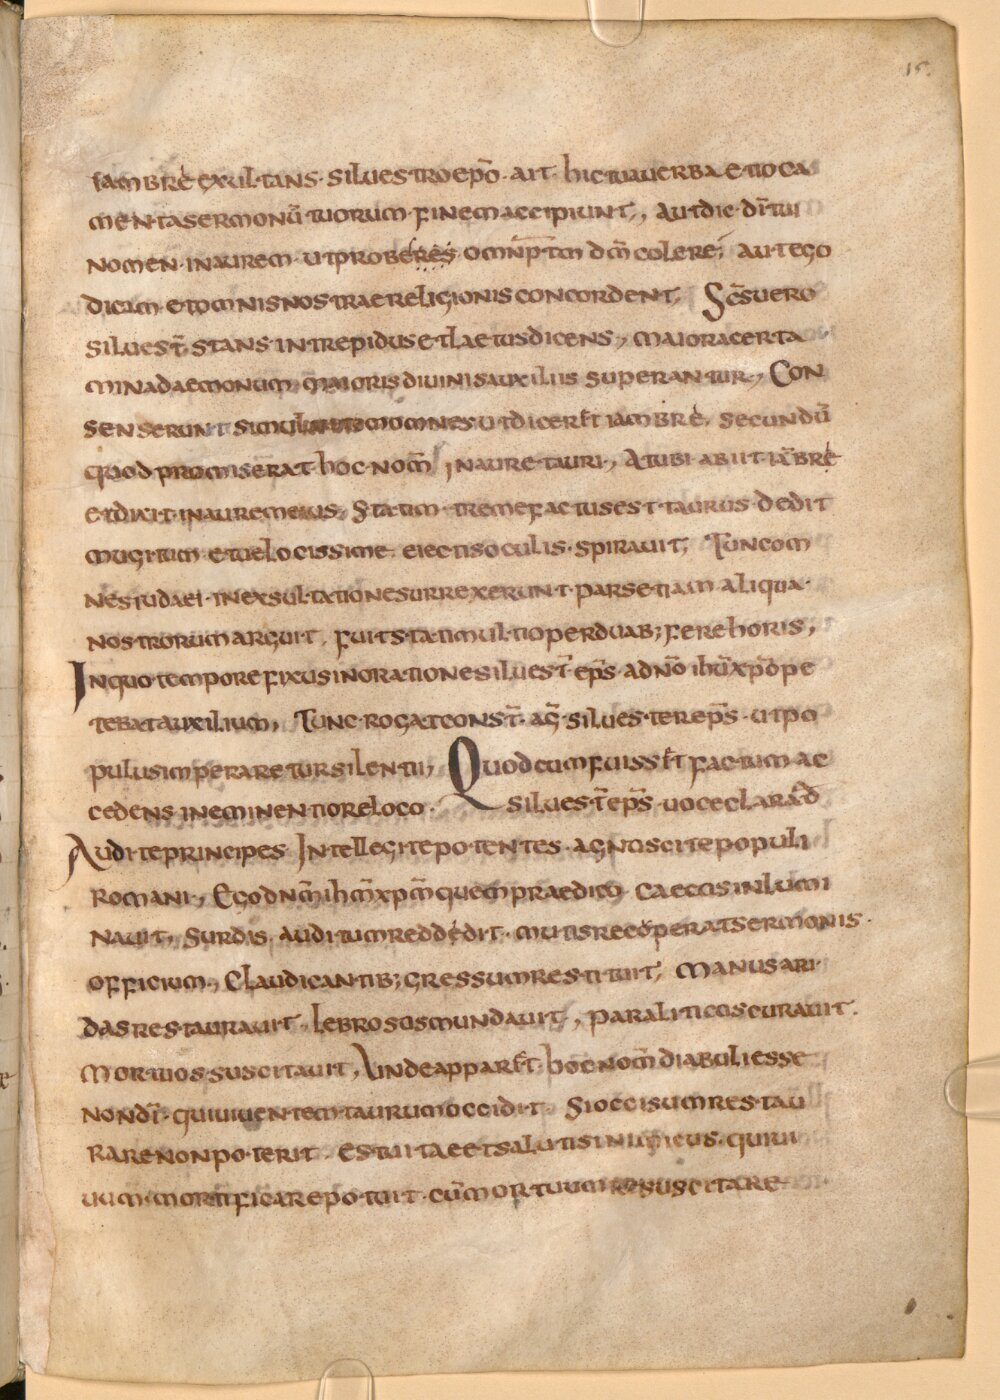 15.
iambrè exultans silvestro ep̄o ait hic tua verba et to ca
menta sermonū tuorum finem accipiunt, aut dic dī tui
nomen in aurem ut proberes omnip̄tm dm̄ colere; aut ego
dicam et omnis nostrae religionis concordent, Sc̄s vero
silvest̄ stans intrepidus et laetus dicens, maiora certa
mina daemonum, maioris divinis auxiliis superantur, Con
senserunt simul omnes ut dicer&t iambrè, secundū
quod promiserat hoc nom̄ in aure tauri, At ubi abiit iābrè
et dixit in aurem eius, Statim tremefactus est taurus dedit
mugitum et velocissime eiectis oculis spiravit, Tunc om
nes iudaei in exsultatione surrexerunt pars etiam aliqua
nostrorum arguit, fuit statim ultio per duab; fere horis,
In quo tempore fixus in oratione silvest̄ ep̄s ad nō ihū xp̄o pe
tebat auxilium, Tunc rogat const̄ ag̅ silvester ep̄s ut po
pulus imperaretur silentii, Quod cum fuiss&t factum ac
cedens in eminentiore loco silvest̄ ep̄s voce clara ad
Audite principes Intellegite potentes agnoscite populi
romani, Ego dn̄m ihm̄ xpm̄ quem praedico caecos inlumi
navit, surdis auditum reddedit mutis recoperat sermonis
officium, Claudicantib; gressum restituit, manus ari
das restauravit, lebrosos mundavit, paraliticos curavit.
Mortuos suscitavit, Unde appar&t hoc nom̄ diabuli esse
non dī qui viventem taurum occidit Si occisum restau
rare non poterit est vitae et salutis inimicus qui vi
vum mortificare potuit cūm mortuum resuscitare